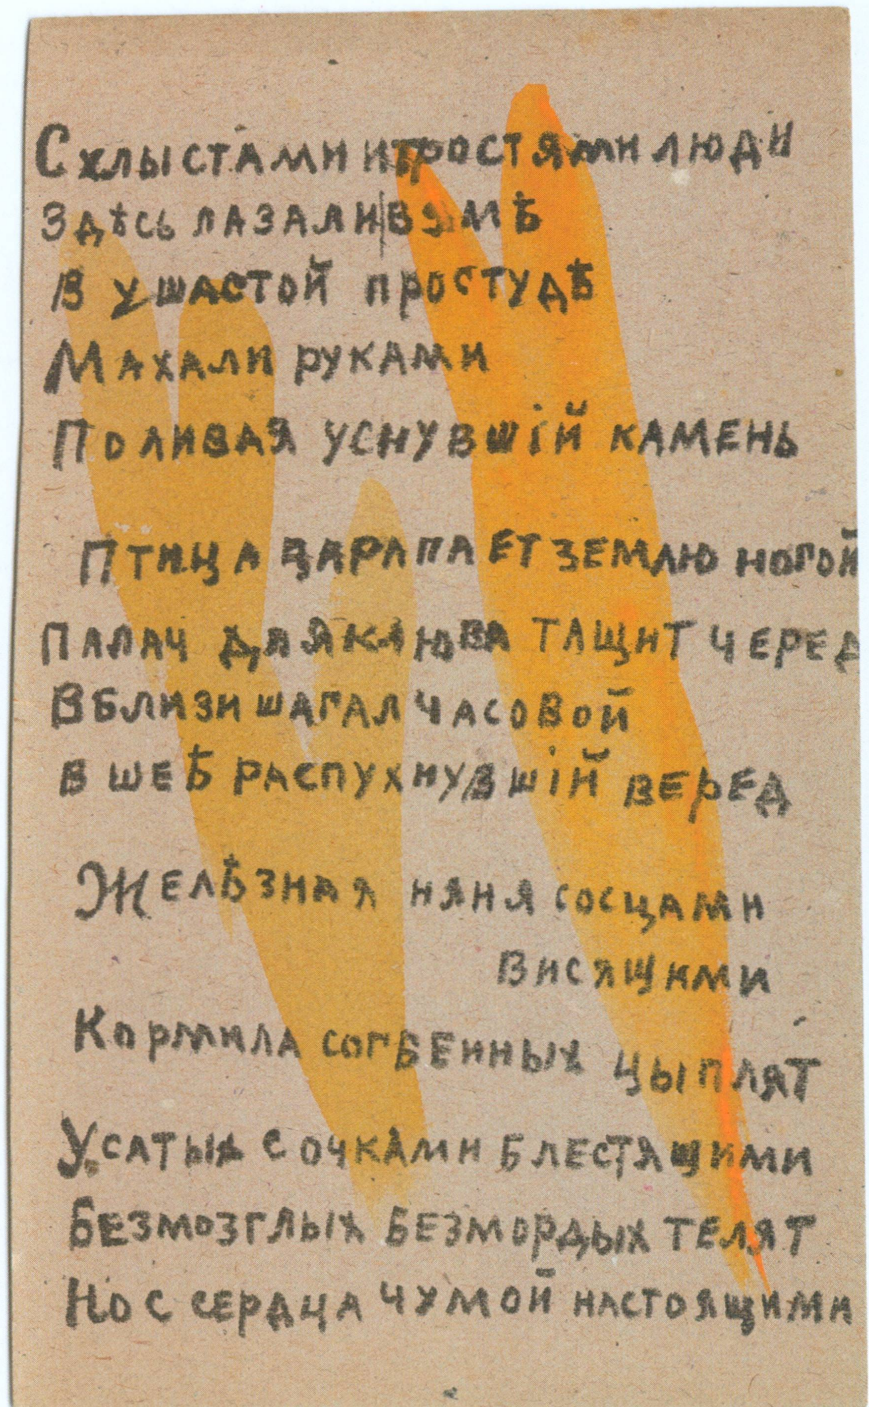 С хлыстами и тростями люди
Здѣсь лазали в умѣ
В ушастой простудѣ
Махали руками
Поливая уснувшій камень
Птица царапает землю ногой
Палач для клюва тащит черед
Вблизи шагал часовой
В шеѣ распухнувшій веред
Желѣзная няня сосцами
висящими
Кормила согбенных цыплят
Усатых с очками блестящими
Безмозглых безмордых телят
Но с сердца чумой настоящими